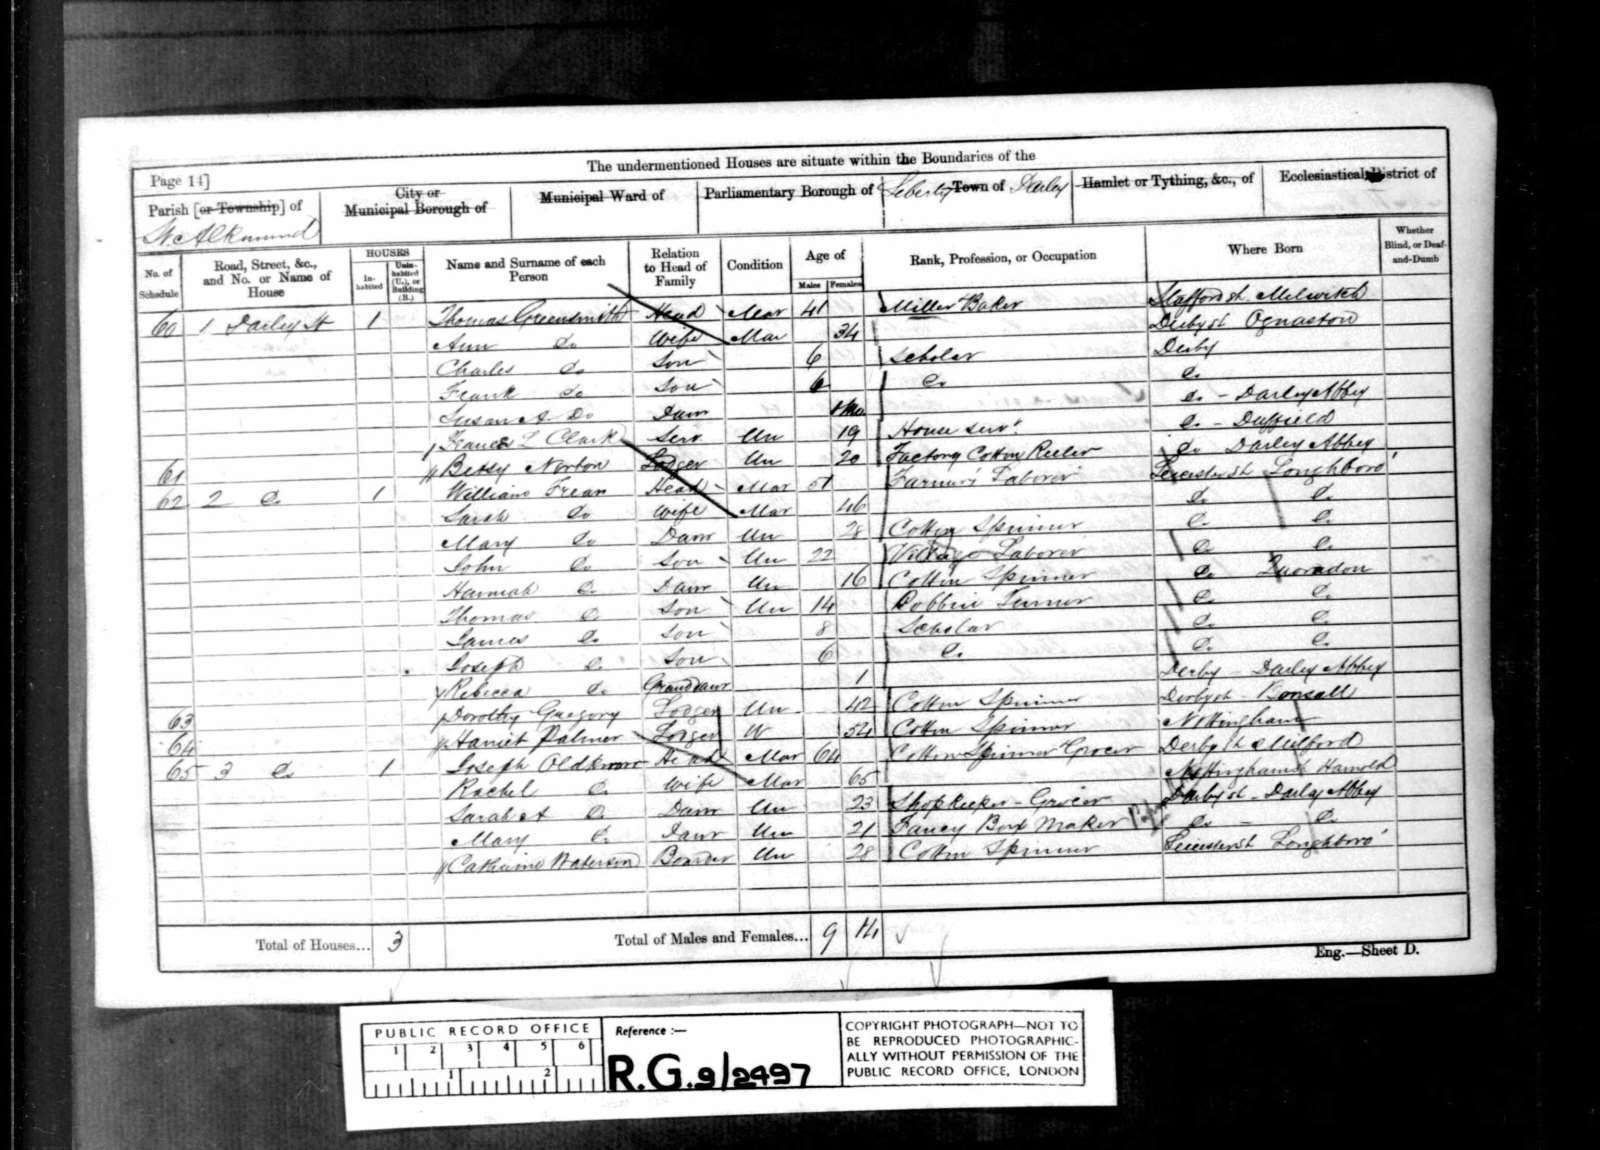 The undermentioned Houses are situate within the Boundaries of the
Page 14]
Parish [or Township] of
City or Municipal Borough of
Municipal Ward of
Parliamentary Borough of
Liberty Town of Darley
Hamlet or Tything, &c., of
Ecclesiastical District of
St. Alkmund
No. of Schedule
Road, Street, &c., and No. or Name of House
HOUSES
In-habited
Unin-habited (U.), or Building (B.)
Name and Surname of each Person
Relation to Head of Family
Condition
Age of
Males
Females
Rank, Profession, or Occupation
Where Born
Whether Blind, or Deaf-and-Dumb
60 1 Darley St 1 Thomas Greensmith Head Mar 41 Miller Baker Staffordsh. Milwitch
Ann Do Wife Mar 34 Derbysh Ognaston
Charles do Son 6 Scholar Derby
Frank do Son 6 Do. Do.
Susan A. Do Daur Do. - Darley Abbey
Frances L Clark Serv Un 19 House servt. Do. - Duffield
61 Betsy Norton Lodger Un 20 Factory Cotton Reeler Do Darley Abbey
62 2 Do. 1 William Frear Head Mar 51 Farmers Laborer Leicestersh Longhboro'
Sarah Do Wife Mar 46 Do. Do.
Mary Do Daur Un 28 Cotton Spinner Do. Do.
John Do. Son Un 22 Laborer Do. Do.
Hannah Do. Daur Un 16 Cotton Spinner Do. Quorndon
Thomas Do. Son Un 14 Bobbin Turner Do. Do.
James Do. Son 8 Scholar Do. Do.
Joseph Do. Son 6 Do. Do. Do.
Rebecca Do. Granddaur 1 Derby - Darley Abbey
63 Dorothy Gregory Lodger Un 42 Cotton Spinner Derbysh - Bonsall
64 Harriet Palmer Lodger W 54 Cotton Spinner Nottingham
65 3 Do. 1 Joseph Oldknow Head Mar 64 Cotton Spinner Grocer Derbysh Milford
Rachel Do. Wife Mar 65 Nottinghamsh
Sarah A Do. Daur Un 23 Shopkeeper - Grocer Derbysh - Darley Abbey
Mary Do. Daur Un 21 Fancy Box Maker Do. - Do.
Catharine Waterson Boarder Un 28 Cotton Spinner Leicestersh Longhboro'
Total of Houses... 3 Total of Males and Females... 9 14
Eng.—Sheet D.
PUBLIC RECORD OFFICE
1 2 3 4 5 6
1 2
Reference :—
R.G.9/2497
COPYRIGHT PHOTOGRAPH—NOT TO
BE REPRODUCED PHOTOGRAPHIC-
ALLY WITHOUT PERMISSION OF THE
PUBLIC RECORD OFFICE, LONDON